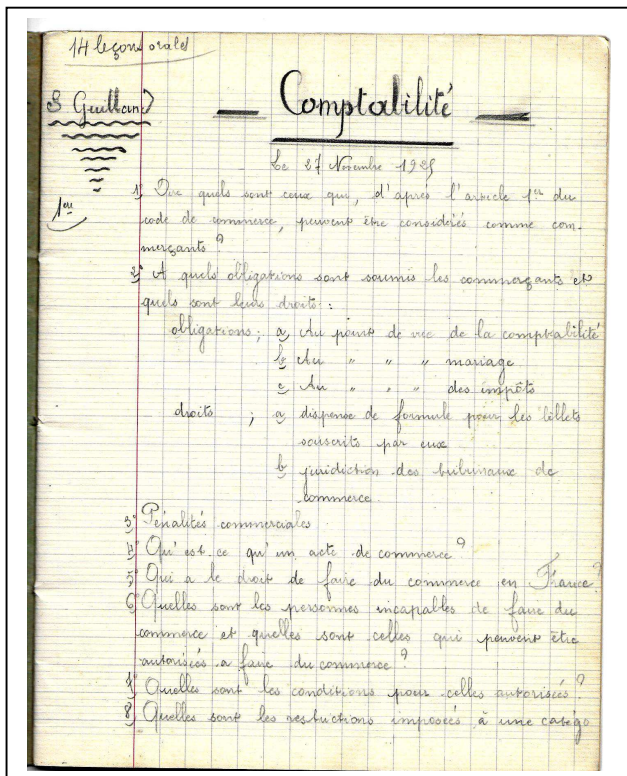 14 leçons orales
S Guilland
Comptabilité
Le 27 Novembre 1925
1ère
1° Dire quels sont ceux qui, d'après l'article 1er du
code de commerce, peuvent être considérés comme com-
merçants ?
2° A quels obligations sont soumis les commerçants et
quels sont leurs droits :
obligations ; a, Au point de vue de la comptabilité
b, Au " " " mariage
c, Au " " " des impôts
droits ; a, dispense de formule pour les billets
souscrits par eux
b, juridiction des tribunaux de
commerce.
3° Pénalités commerciales
4° Qu'est ce qu'un acte de commerce ?
5° Qui a le droit de faire du commerce en France ?
6° Quelles sont les personnes incapables de faire du
commerce et quelles sont celles qui peuvent être
autorisées a faire du commerce ?
7° Quelles sont les conditions pour celles autorisées ?
8° Quelles sont les restrictions imposées à une catégo